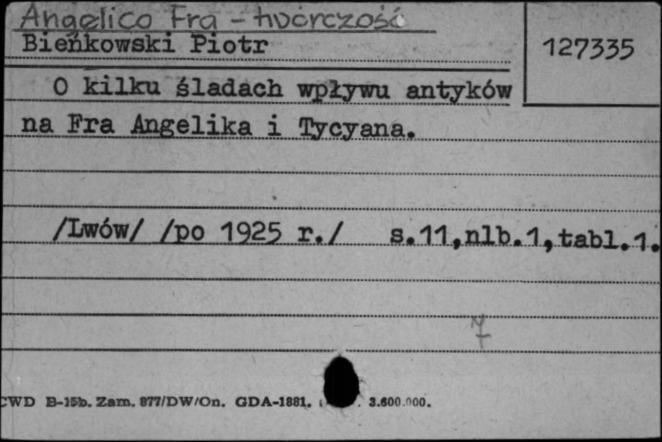 Angelico Fra - twórczość
Bieńkowski Piotr
127335
O kilku śladach wpływu antyków
na Fra Angelika i Tycyana.
/Lwów/ /po 1925 r./ s.11,nlb.1,tabl.1.
CWD B-15b. Zam. 877/DW/On. GDA-1881. 3.600.000.